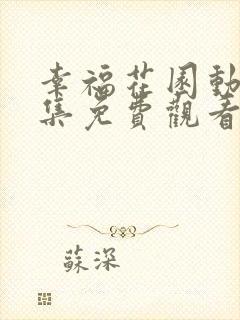 幸福花園動
集免費觀看
蘇深